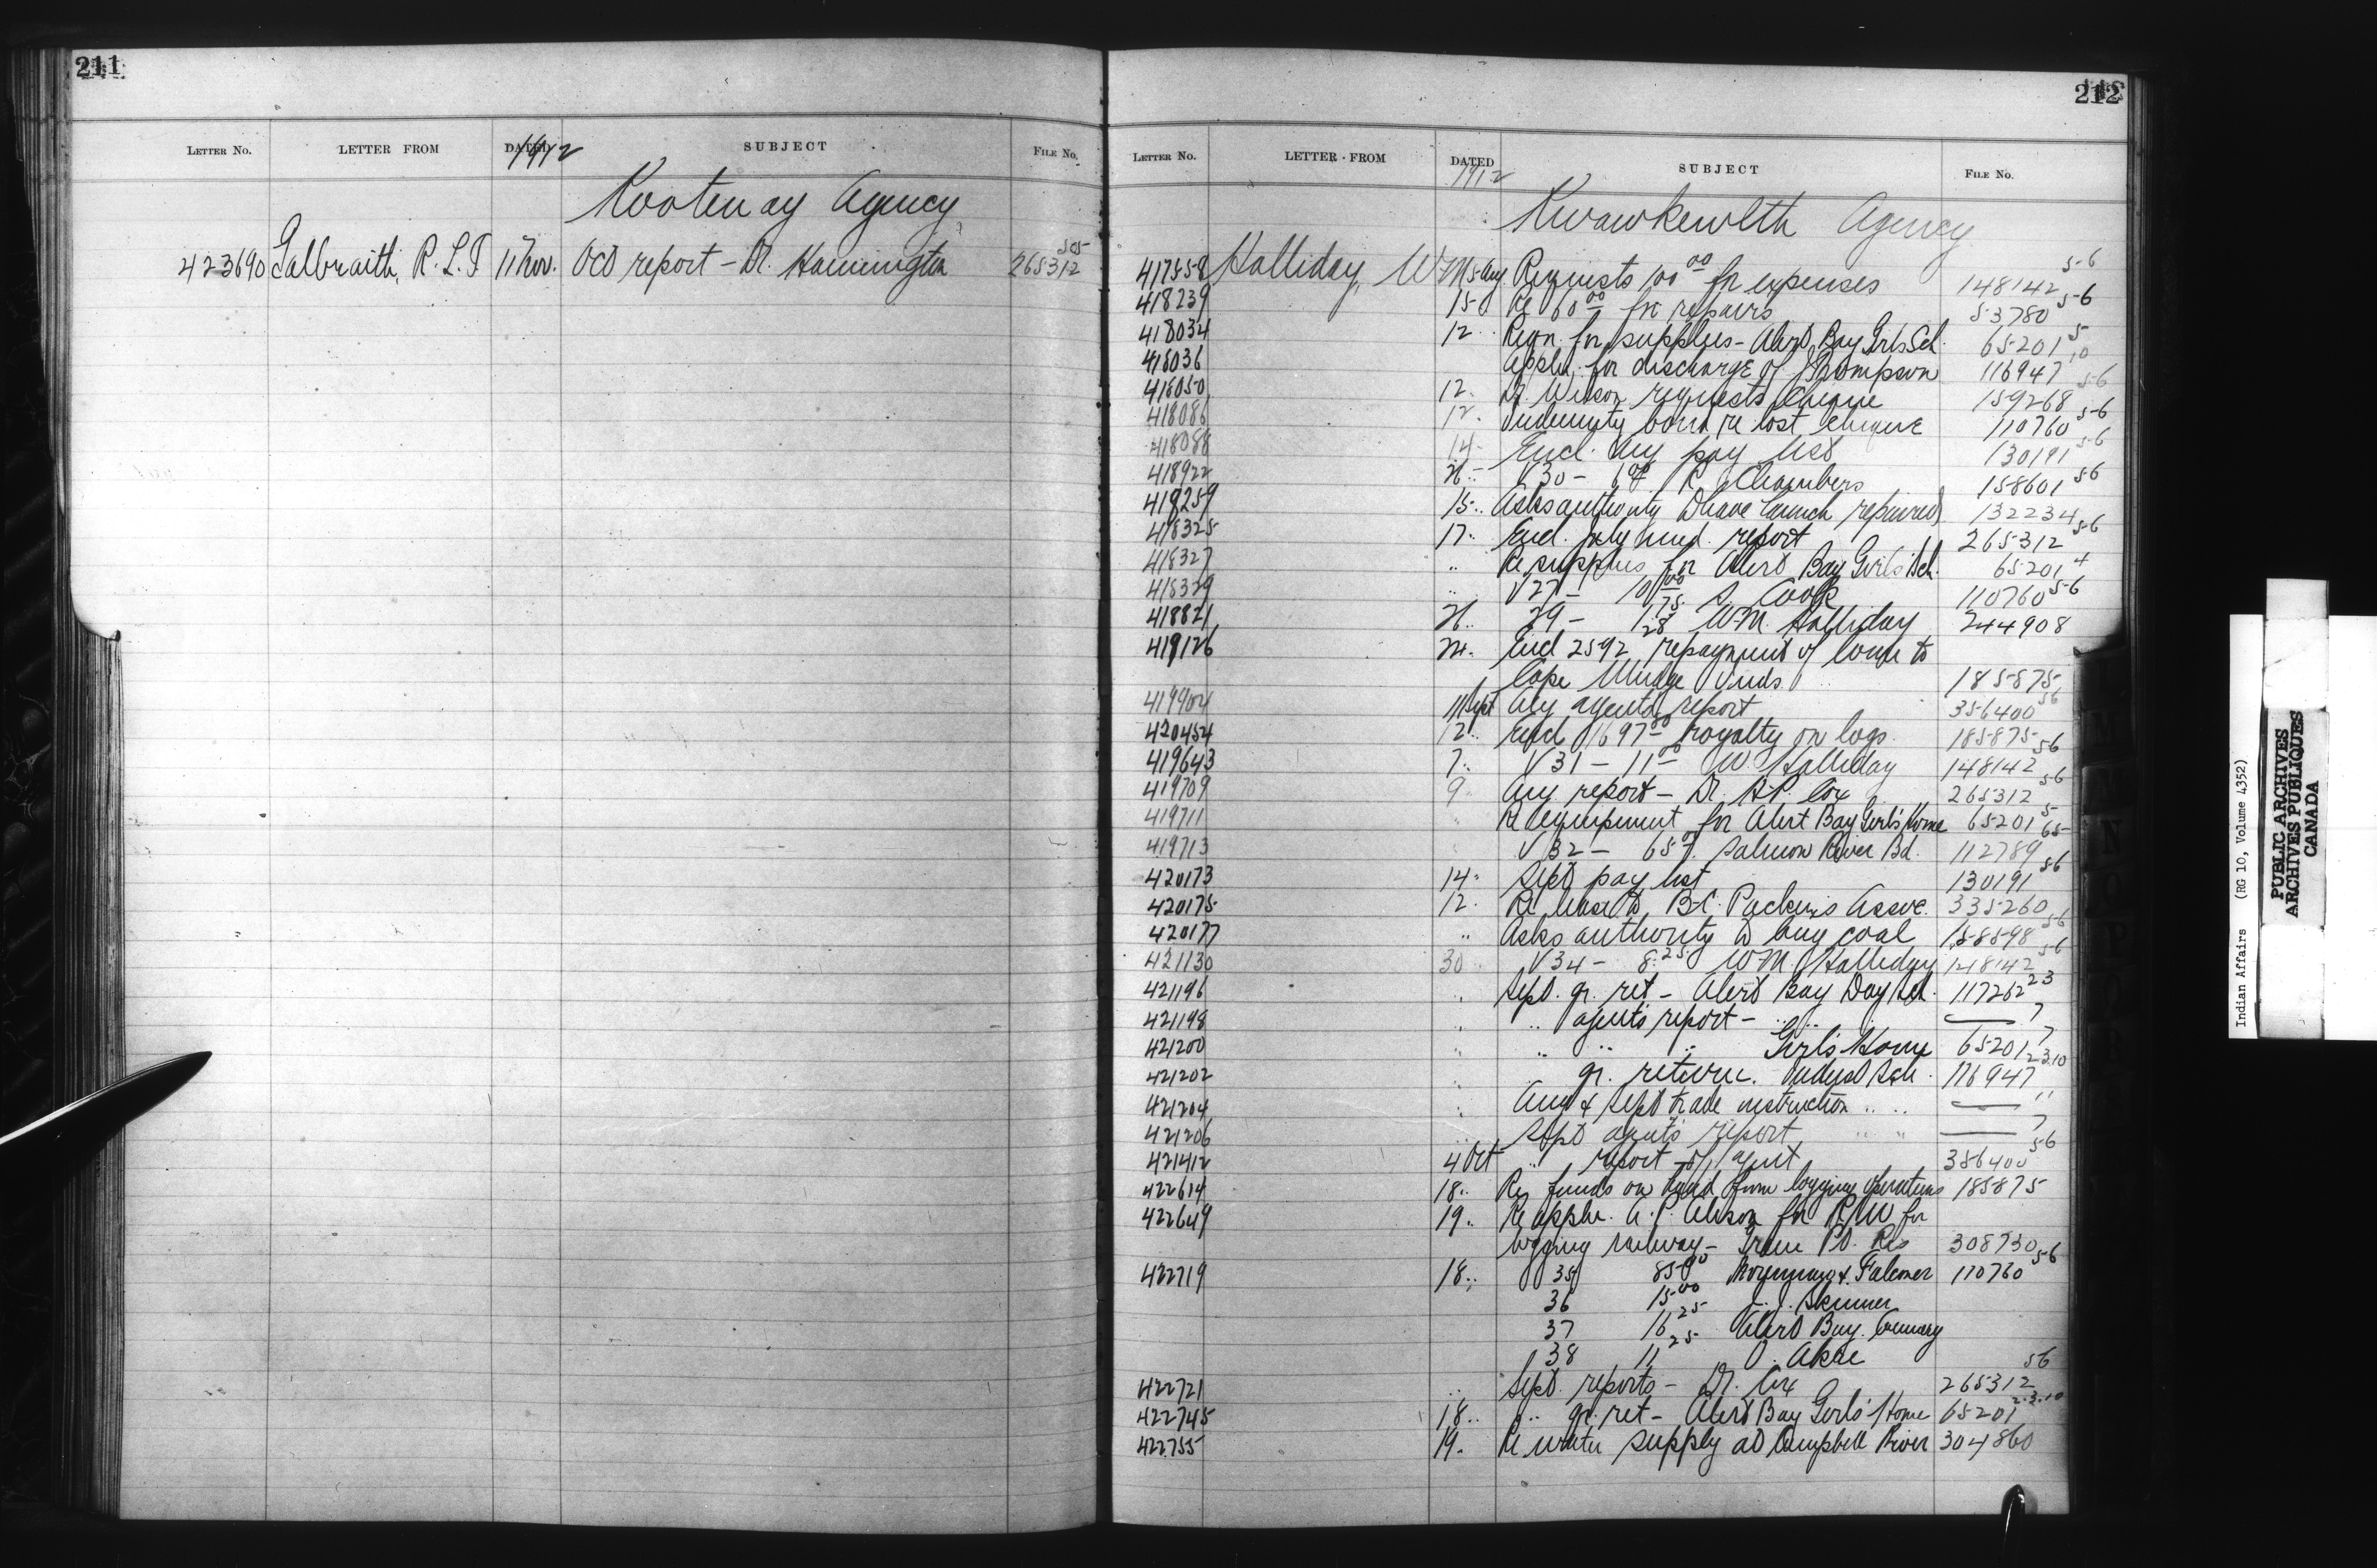 211
LETTER NO. LETTER FROM DATED 1912 SUBJECT FILE No.
Kootenay Agency
423690 Galbraith, R. L. T 11 Nov. Oct report - Dr. Hannington 265312
212
LETTER No. LETTER FROM DATED 1912 SUBJECT FILE No.
Kwawkewlth Agency
417558 Halliday, W M 5 Aug Requests 100 00 for expenses 148142 56
418239 15 Re 60 00 for repairs 53780 56
418034 12 Reqn. for supplies - Alert Bay Girls Sch 65201 5
418036 Appln. for discharge of J Thompson 116947 10
418050 12 requests cheque 159268 56
418086 12 Indemnity bond re lost cheque 110760 56
418088 14 Encl. Aug pay list 130191 56
418922 26 V30 - R Chambers 158601 56
418259 15 Asks authority to have launch repaired 132234
418325 17 Encl. July med. report 265312 56
418327 " Re supplies for Alert Bay Girls' Sch. 65201 4
418329 " V27 - S. Cook 110760 56
418821 26 29 - W.M. Halliday 244908
419126 24 Encl 2592 repayment of loan to
Cape Mudge Inds. 185875
419904 11 Sept Aug agents report 356400 56
420454 12 Encl 1697 royalty on logs 185875
419643 7 V31 - 11 00 W Halliday 148142 56
419709 9 Aug. report - Dr. Cox 265312 56
419711 " Re equipment for Alert Bay Girls' Home 65201 5
419713 " V32 - 65 Salmon River Bd. 112789 65
420173 14 Sept pay list 130191 56
420175 12 Re lease to B.C. Packers Assoc. 335260
420177 " Asks authority to buy coal 158598 56
421130 30 V34 - 8.25 W M. Halliday 148142 56
421196 " Sept. qr. ret - Alert Bay Day Sch. 117262 23
421198 " " agents report - " " — 7
421200 " " " " Girls' Home 65201 7
421202 " qr. return. Indust Sch. 116947 2.3.10
421204 " Aug & Sept trade instruction " " — "
421206 " Sept agents report " " — 7
421412 4 Oct " report of agent 356400 56
422614 18 Re funds on hand from logging operations 185875
422649 19 Re appln. for R/W for
logging railway - Res 308730
422719 18 35 85 00 & Falconer 110760 56
36 15 00 J. Skinner
37 16 25 Alert Bay Cannery
38 11 25
422721 " Sept. reports - Dr. Cox 265312 56
422745 18 " qr. ret - Alert Bay Girls' Home 65201 2.3.10
422755 19 Re water supply at Campbell River 304860
Indian Affairs (RG 10, Volume 4352)
PUBLIC ARCHIVES
ARCHIVES PUBLIQUES
CANADA